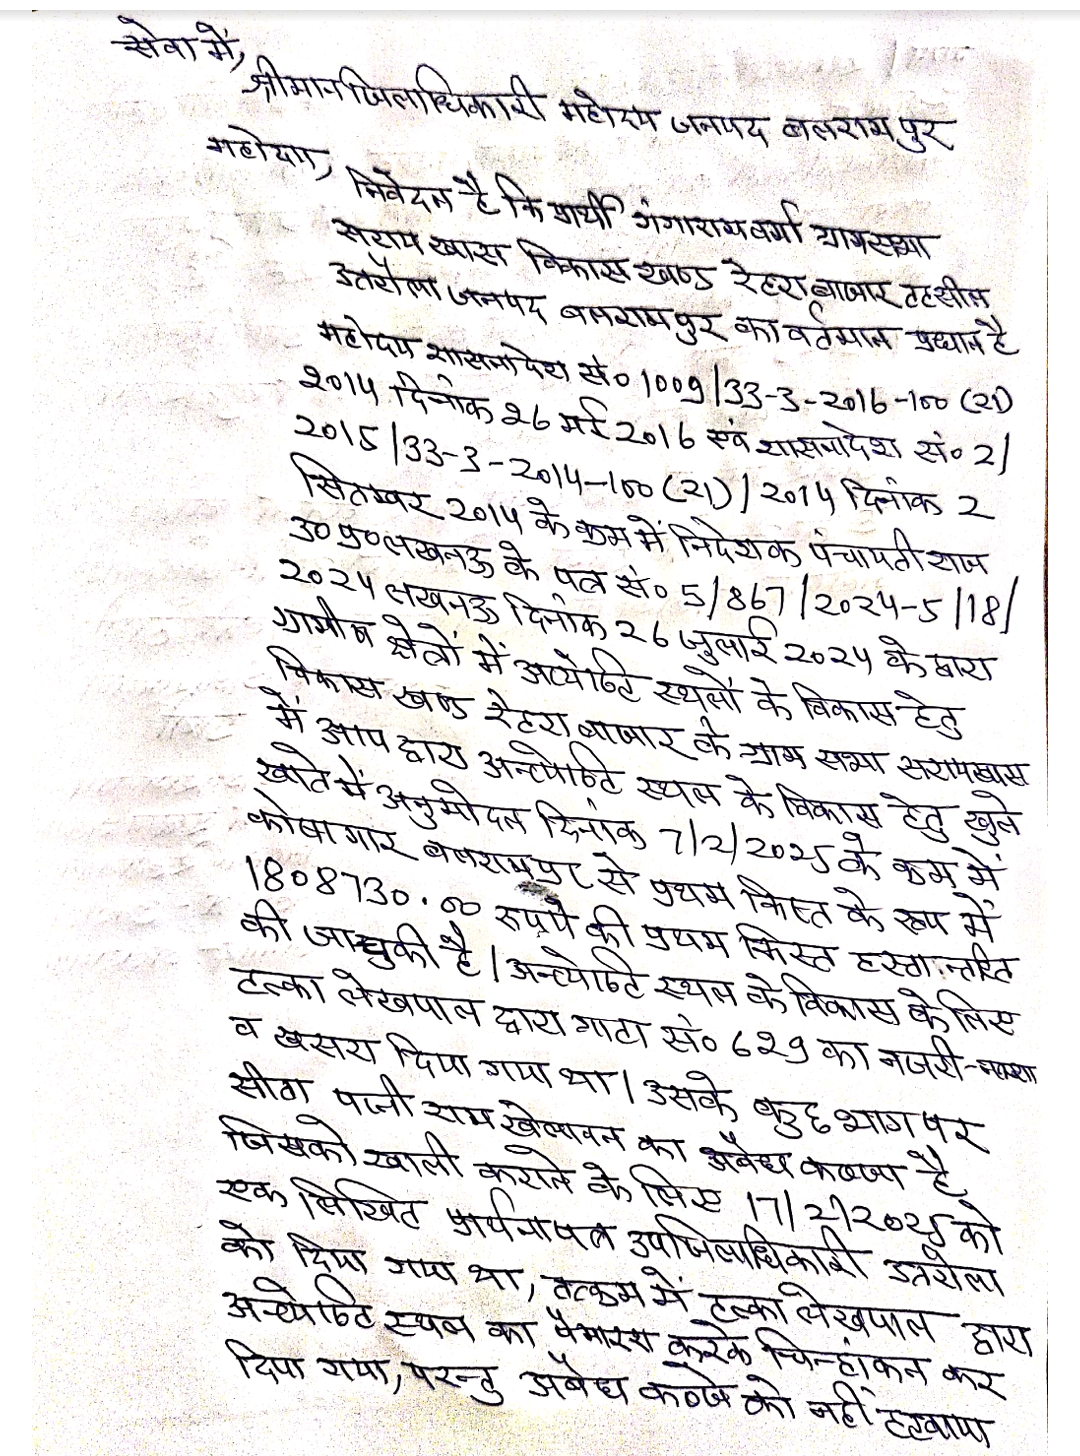 सेवा में,
श्रीमान जिलाधिकारी महोदय जनपद बलरामपुर
महोदय,
निवेदन है कि प्रार्थी गंगाराम वर्मा ग्रामसभा
सराय खास विकास खण्ड रेहरा बाजार तहसील
उतरौला जनपद बलरामपुर का वर्तमान प्रधान है
महोदय शासनादेश सं० 1009/33-3-2016-100 (21)
2014 दिनांक 26 मई 2016 एवं शासनादेश सं० 2/
2015/33-3-2014-100 (21)/2014 दिनांक 2
सितम्बर 2014 के क्रम में निदेशक पंचायती राज
उ0प्र0 लखनऊ के पत्र सं० 5/867/2024-5/18/
2024 लखनऊ दिनांक 26 जुलाई 2024 के द्वारा
ग्रामीण क्षेत्रों में अत्येष्टि स्थलों के विकास हेतु
विकास खण्ड रेहरा बाजार के ग्राम सभा सरायखास
में आप द्वारा अन्त्येष्टि स्थल के विकास हेतु खुले
खाते में अनुमोदन दिनांक 7/2/2025 के क्रम में
कोषागार बलरामपुर से प्रथम किस्त के रूप में
1808730.00 रूपये की प्रथम किस्त हस्तान्तरित
की जा चुकी है। अन्त्येष्टि स्थल के विकास के लिए
हल्का लेखपाल द्वारा गाटा सं० 629 का नजरी-नक्शा
व खसरा दिया गया था। उसके कुछ भाग पर
सीता पत्नी राम खेलावन का अवैध कब्जा है
जिसको खाली कराने के लिए 17/2/2025 को
एक लिखित प्रार्थनापत्र उपजिलाधिकारी उतरौला
को दिया गया था, तत्क्रम में हल्का लेखपाल द्वारा
अन्त्येष्टि स्थल का पैमाइश करके चिन्हांकन कर
दिया गया, परन्तु अवैध कब्जे को नहीं हटवाया